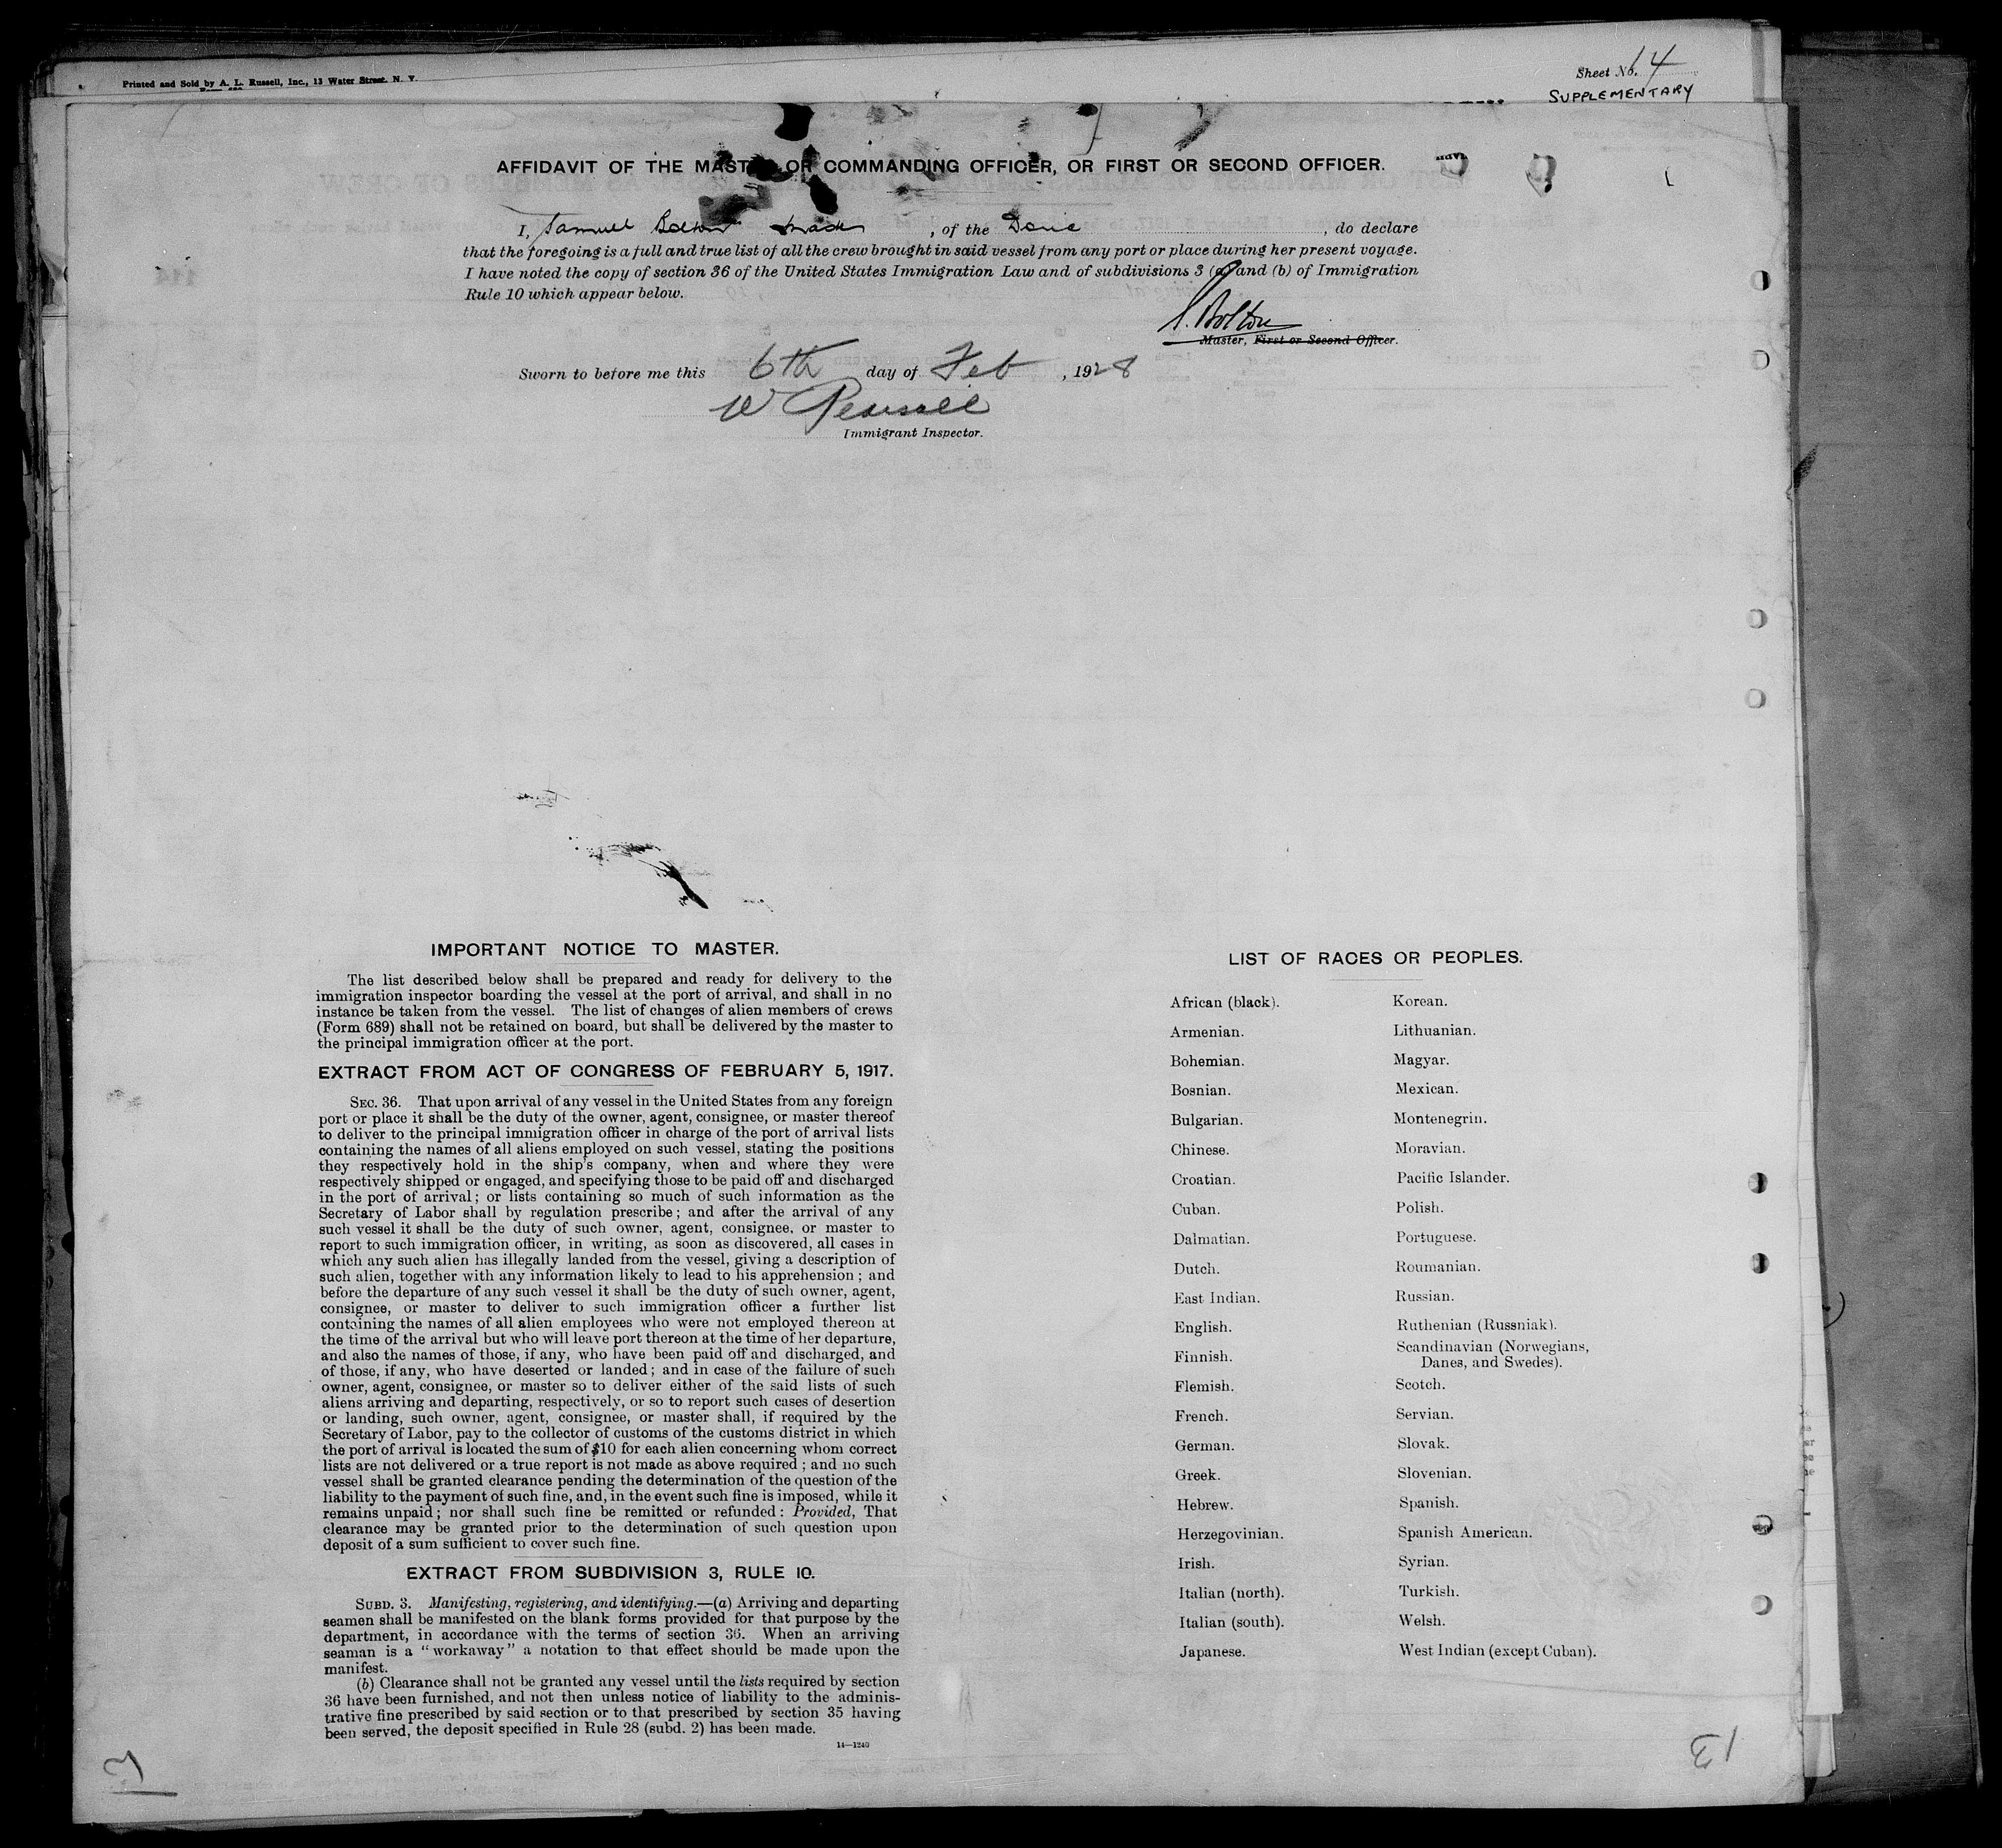 Printed and Sold by A. L. Russell, Inc., 13 Water Street. N. Y.
Sheet No. 14
SUPPLEMENTARY
AFFIDAVIT OF THE MASTER OR COMMANDING OFFICER, OR FIRST OR SECOND OFFICER.
I, Samuel Bolton Master, of the Doric, do declare
that the foregoing is a full and true list of all the crew brought in said vessel from any port or place during her present voyage.
I have noted the copy of section 36 of the United States Immigration Law and of subdivisions 3 (a) and (b) of Immigration
Rule 10 which appear below.
S. Bolton
Master, First or Second Officer.
Sworn to before me this 6th day of Feb, 1928
W Pearsall
Immigrant Inspector.
IMPORTANT NOTICE TO MASTER.
The list described below shall be prepared and ready for delivery to the
immigration inspector boarding the vessel at the port of arrival, and shall in no
instance be taken from the vessel. The list of changes of alien members of crews
(Form 689) shall not be retained on board, but shall be delivered by the master to
the principal immigration officer at the port.
EXTRACT FROM ACT OF CONGRESS OF FEBRUARY 5, 1917.
SEC. 36. That upon arrival of any vessel in the United States from any foreign
port or place it shall be the duty of the owner, agent, consignee, or master thereof
to deliver to the principal immigration officer in charge of the port of arrival lists
containing the names of all aliens employed on such vessel, stating the positions
they respectively hold in the ship's company, when and where they were
respectively shipped or engaged, and specifying those to be paid off and discharged
in the port of arrival; or lists containing so much of such information as the
Secretary of Labor shall by regulation prescribe; and after the arrival of any
such vessel it shall be the duty of such owner, agent, consignee, or master to
report to such immigration officer, in writing, as soon as discovered, all cases in
which any such alien has illegally landed from the vessel, giving a description of
such alien, together with any information likely to lead to his apprehension; and
before the departure of any such vessel it shall be the duty of such owner, agent,
consignee, or master to deliver to such immigration officer a further list
containing the names of all alien employees who were not employed thereon at
the time of the arrival but who will leave port thereon at the time of her departure,
and also the names of those, if any, who have been paid off and discharged, and
of those, if any, who have deserted or landed; and in case of the failure of such
owner, agent, consignee, or master so to deliver either of the said lists of such
aliens arriving and departing, respectively, or so to report such cases of desertion
or landing, such owner, agent, consignee, or master shall, if required by the
Secretary of Labor, pay to the collector of customs of the customs district in which
the port of arrival is located the sum of $10 for each alien concerning whom correct
lists are not delivered or a true report is not made as above required; and no such
vessel shall be granted clearance pending the determination of the question of the
liability to the payment of such fine, and, in the event such fine is imposed, while it
remains unpaid; nor shall such fine be remitted or refunded: Provided, That
clearance may be granted prior to the determination of such question upon
deposit of a sum sufficient to cover such fine.
EXTRACT FROM SUBDIVISION 3, RULE 10.
SUBD. 3. Manifesting, registering, and identifying.—(a) Arriving and departing
seamen shall be manifested on the blank forms provided for that purpose by the
department, in accordance with the terms of section 36. When an arriving
seaman is a "workaway" a notation to that effect should be made upon the
manifest.
(b) Clearance shall not be granted any vessel until the lists required by section
36 have been furnished, and not then unless notice of liability to the adminis-
trative fine prescribed by said section or to that prescribed by section 35 having
been served, the deposit specified in Rule 28 (subd. 2) has been made.
14—1240
LIST OF RACES OR PEOPLES.
African (black).
Armenian.
Bohemian.
Bosnian.
Bulgarian.
Chinese.
Croatian.
Cuban.
Dalmatian.
Dutch.
East Indian.
English.
Finnish.
Flemish.
French.
German.
Greek.
Hebrew.
Herzegovinian.
Irish.
Italian (north).
Italian (south).
Japanese.
Korean.
Lithuanian.
Magyar.
Mexican.
Montenegrin.
Moravian.
Pacific Islander.
Polish.
Portuguese.
Roumanian.
Russian.
Ruthenian (Russniak).
Scandinavian (Norwegians,
Danes, and Swedes).
Scotch.
Servian.
Slovak.
Slovenian.
Spanish.
Spanish American.
Syrian.
Turkish.
Welsh.
West Indian (except Cuban).
13